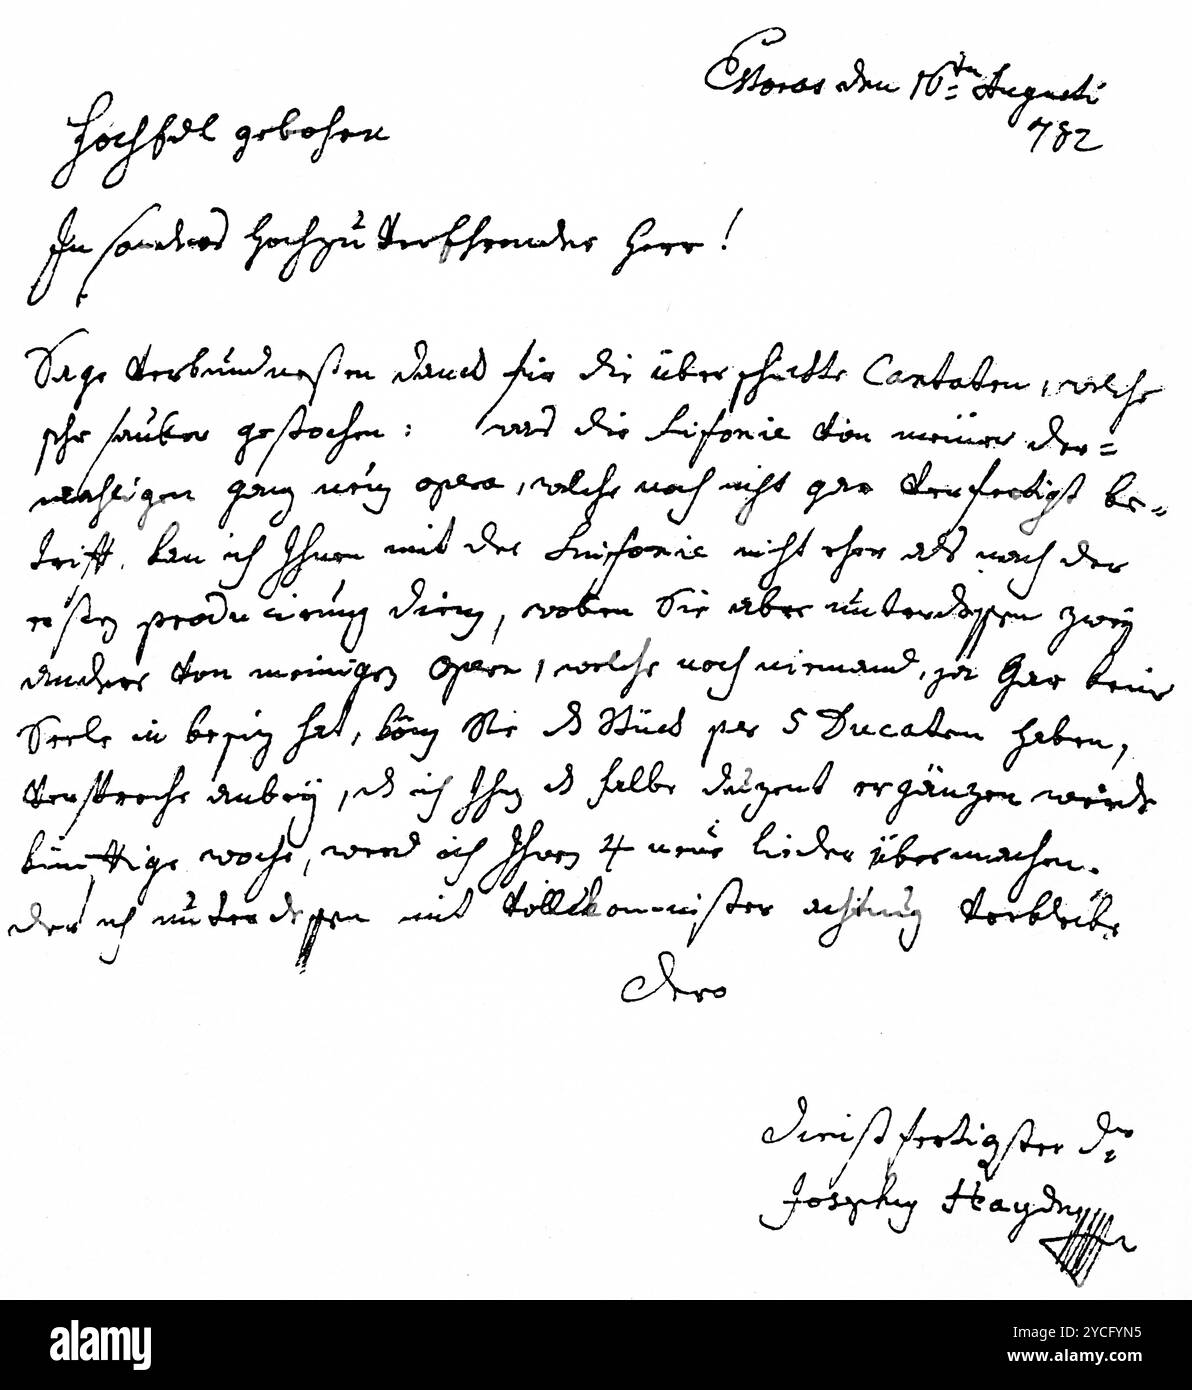 Estoras den 16ten Augusti
782
Hochedl gebohrn
In sonders HochzuverEhrender Herr!
Sage verbundnesten danck für die überschickte Cantaten, welche
sehr sauber gestochen: was die Sinfonie von meiner der=
mahligen ganz neuen opera, welche noch nicht gar verfertigt be=
trift, kan ich Ihnen mit der Sinfonie nicht eher als nach der
ersten producirung dienen, wollen Sie aber unterdessen zwey
andere von meinigen opern, welche noch niemand, ja Gar keine
Seele in besiz hat, könen Sie das Stück per 5 Ducaten haben,
verspreche anbey, das ich Ihnen das halbe duzent ergänzen werde
künfftige woche, werd ich Ihnen 4 neue lieder übermachen.
der ich unterdessen mit vollkommnister achtung verbleibe
Dero
dienstfertigster dr
Josephus Haydn
alamy
Image ID: 2YCFYN5
www.alamy.com